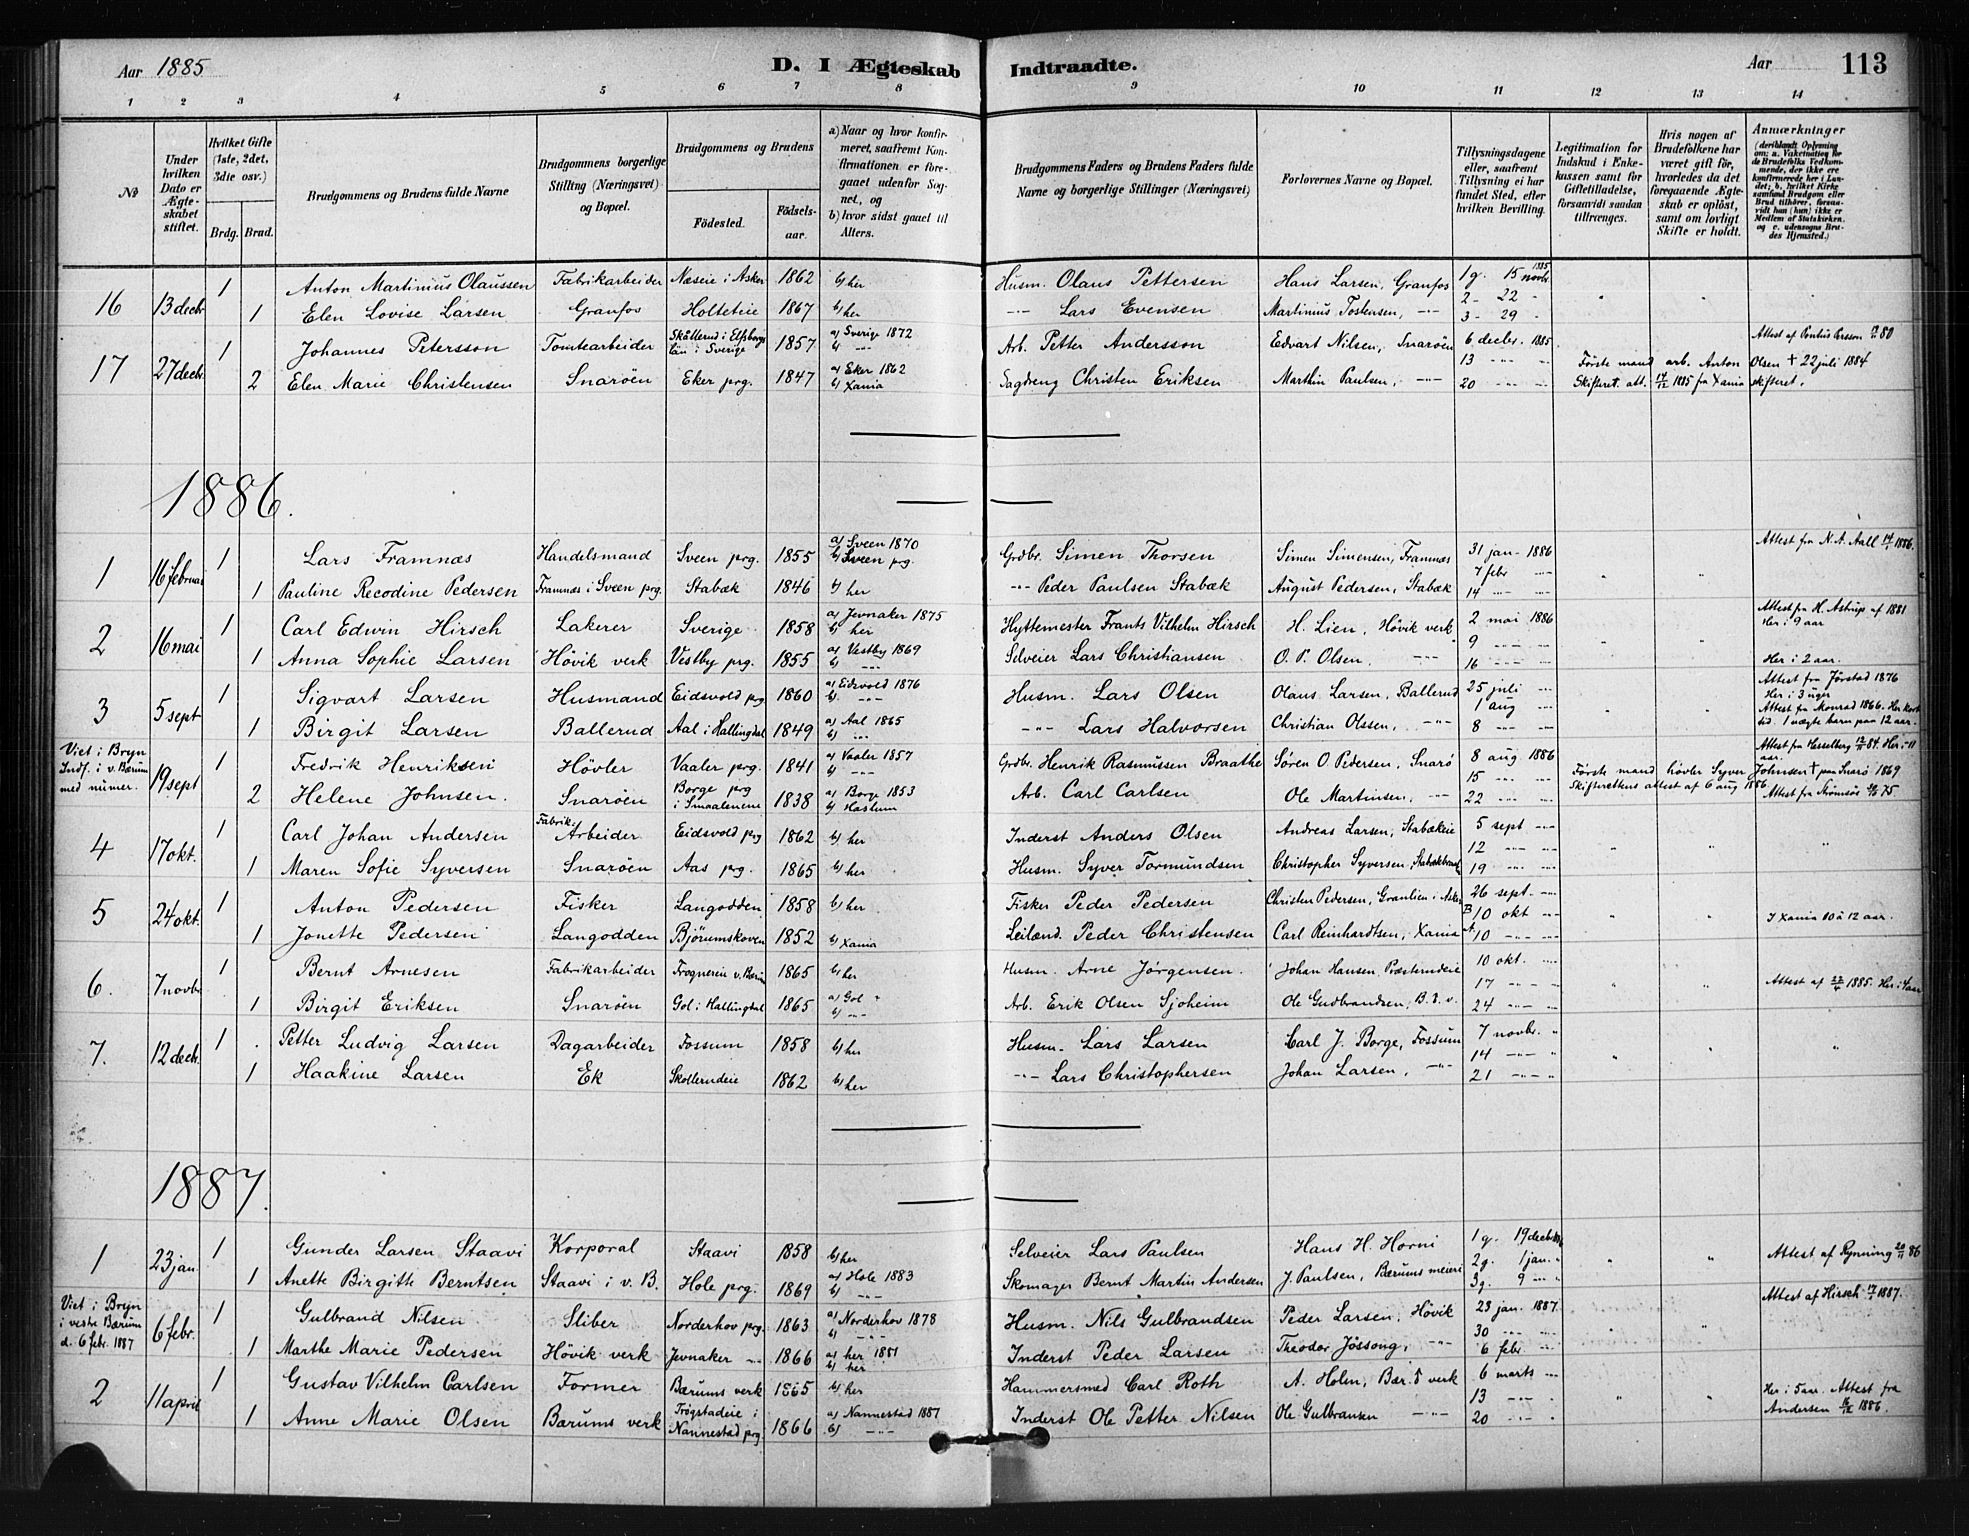 Aar 1885
D. I Ægteskab Indtraadte.
Aar
113
1 2 3 4 5 6 7 8 9 10 11 12 13 14
No
Under hvilken Dato er Ægteskabet stiftet.
Hvilket Gifte (1ste, 2det, 3die osv.)
Brdg. Brud.
Brudgommens og Brudens fulde Navne
Brudgommens borgerlige Stilling (Næringsvei) og Bopæl.
Brudgommens og Brudens
Födested. Födselsaar.
a) Naar og hvor konfirmeret, saafremt Konfirmationen er foregaaet udenfor Sognet, og
b) hvor sidst gaaet til Alters.
Brudgommens Faders og Brudens Faders fulde Navne og borgerlige Stillinger (Næringsvei)
Forlovernes Navne og Bopæl.
Tillysningsdagene eller, saafremt Tillysning ei har fundet Sted, efter hvilken Bevilling.
Legitimation for Indskud i Enkekassen samt for Giftetilladelse, forsaavidt saadan tiltrænges.
Hvis nogen af Brudefolkene har været gift för, hvorledes da det foregaaende Ægteskab er oplöst, samt om lovligt Skifte er holdt.
Anmærkninger (deriblandt Oplysning om: a. Vaksination for de Brudefolks Vedkommende, der ikke ere konfirmerede her i Landet; b. hvilket Kirkesamfund Brudgom eller Brud tilhörer, forsaavidt han (hun) ikke er Medlem af Statskirken, og c. udensogns Brudes Hjemsted.)
16 13 decbr 1 Anton Martinius Olaussen Fabrikarbeider Næseie i Asker 1862 b) her Husm. Olaus Pettersen Hans Larsen, Granfos 1 g. 15 novbr. 1885
1 Elen Lovise Larsen Granfos Holteteie 1867 b) her -"- Lars Evensen Martinius Tostensen, -"- 2 - 22 "
3 - 29 "
17 27 decbr 1 Johannes Petersson Tomtearbeider Skållerud i Elfsborgs län i Sverige 1857 a) Sverige 1872 b) -"- Arb. Petter Andersson Edvart Nilsen, Snaröen 6 decbr. 1885 Attest af Pontus Persson 80
13 -"- Förste mand arb. Anton Olsen † 22 juli 1884
2 Elen Marie Christensen Snaröen Eker prg. 1847 a) Eker 1862 b) Xania Sagdreng Christen Eriksen Marthin Paulsen, -"- 20 -"- Skifteret. att. 14/12 1885 fra Xania skifteret.
1886.
1 16 februar 1 Lars Framnæs Handelsmand Sveen prg. 1855 a) Sveen 1870 b) Sveen prg. Grdbr. Simen Thorsen Simen Simensen, Framnæs 31 jan. 1886 Attest fra N. A. Aall 14/1 1886.
7 febr -"-
1 Pauline Recodine Pedersen Framnæs i Sveen prg. Stabæk 1846 b) her -"- Peder Paulsen Stabæk August Pedersen, Stabæk 14 -"-
2 16 mai 1 Carl Edwin Hirsch Lakerer Sverige 1858 a) Jevnaker 1875 b) her Hyttemester Frants Vilhelm Hirsch H. Lien, Hövik verk 2 mai 1886 Attest fra H. Astrup af 1881 Her i 9 aar
9 -"-
1 Anna Sophie Larsen Hövik verk Vestby prg. 1855 a) Vestby 1869 b) -"- Selveier Lars Christiansen O. P. Olsen. -"- 16 -"- Her i 2 aar.
3 5 sept 1 Sigvart Larsen Husmand Eidsvold prg 1860 a) Eidsvold 1876 b) -"- Husm. Lars Olsen Olaus Larsen, Ballerud 25 juli -"- Attest fra Jörstad 1876 Her i 3 uger
1 aug -"-
1 Birgit Larsen Ballerud Aal i Hallingdal 1849 a) Aal 1865 b) -"- -"- Lars Halvorsen Christian Olssen, -"- 8 -"- Attest fra Monrad 1866. Her kort tid. 1 uægte barn paa 12 aar.
Viet i Bryn Indf. i v. Bærum med numer. 19 sept 1 Fredrik Henriksen Hövler Vaaler prg. 1841 a) Vaaler 1857 b) -"- Grdbr. Henrik Rasmussen Braathe Sören O Pedersen, Snarö 8 aug 1886 Attest fra Hesselberg 84. Her i 11 aar.
15 -"- Förste mand hövler Syver Johnsen † paa Snarö 1869
2 Helene Johnsen. Snaröen Borge prg i Smaalenene 1838 a) Borge 1853 b) Haslum Arb. Carl Carlsen Ole Martinsen, -"- 22 -"- Skifterettens attest af 6 aug 1886 Attest fra Strömsöe 75.
4 17 okt. 1 Carl Johan Andersen Fabrik. Arbeider Eidsvold prg 1862 b) her Inderst Anders Olsen Andreas Larsen, Stabækeie 5 sept -"-
12 -"-
1 Maren Sofie Syversen Snaröen Aas prg. 1865 b) her Husm. Syver Tormundsen Christopher Syversen, 19 -"-
5 24 okt. 1 Anton Pedersen Fisker Langodden 1858 b) her Fisker Peder Pedersen Christen Pedersen, Graulien i Asker 26 sept. -"-
B 10 okt -"- I Xania 10 à 12 aar.
1 Jonette Pedersen Langodden Björumskoven 1852 b) Xania Leilænd. Peder Christensen Carl Reinhardtsen, Xania A 10 -"-
6. 7 novbr 1 Bernt Arnesen Fabrikarbeider Trogneeie v. Bærum 1865 b) her Husm. Arne Jörgensen. Johan Hansen Præsterudeie 10 okt. -"-
17 -"- Attest af 22/4 1885. Her i 4 aar
1 Birgit Eriksen Snaröen Gol i Hallingdal 1865 a) Gol " b) -"- Arb. Erik Olsen Sjoheim Ole Gudbrandsen, B. v. 24 -"-
7. 12 decbr. 1 Petter Ludvig Larsen Dagarbeider Fossum 1858 b) her Husm. Lars Larsen Carl J. Borge, Fossum 7 novbr. "
14 -"-
1 Haakine Larsen Ek Skollerudeie 1862 b) her -"- Lars Christophersen Johan Larsen, -"- 21 -"-
1887.
1 23 jan 1 Gunder Larsen Staavi Korporal Staavi 1858 b) her Selveier Lars Paulsen Hans H. Horni 1 g. 19 decbr. Attest af Rynning 20/11 86
2 g. 1 jan. "
1 Anette Birgitte Berntsen Staavi i v. B. Hole prg. 1869 a) Hole 1883 b) -"- Skomager Bernt Martin Andersen J. Paulsen, Bærums meieri 3 g. 9 -"-
Viet i Bryn i vestre Bærum d. 6 febr. 1887 6 febr. 1 Gulbrand Nilsen Sliber Norderhov prg. 1863 a) Norderhov 1878 b) -"- Husm. Nils Gulbrandsen Peder Larsen, Hövik 23 jan. 1887. Attest af Hirsch 1887.
30 -"-
1 Marthe Marie Pedersen Hövik verk Jevnaker -"- 1866 a) her 1881 b) her Inderst Peder Larsen Theodor Jössong, -"- 6 febr -"-
2 11 april 1 Gustav Vilhelm Carlsen Former Bærums verk 1865 b) her Hammersmed Carl Roth A. Holm, Bær. verk 6 marts -"- Her i 5 aar. Attest fra Andersen 1886.
13 -"-
1 Anne Marie Olsen Bærums verk Trögstadeie i Nannestad prg. 1866 a) Nannestad 1887 b) -"- Inderst Ole Petter Nilsen Ole Gulbransen -"- 20 -"-